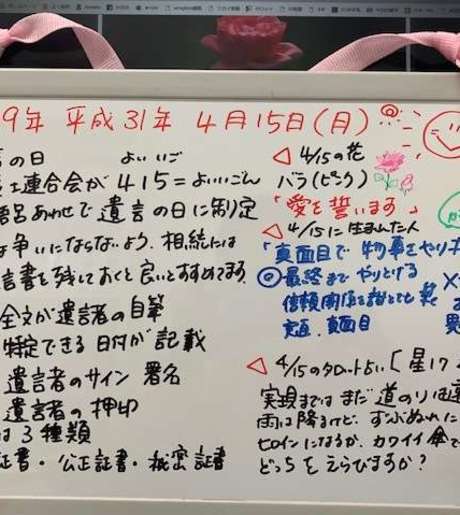 9年 平成31年 4月15日(月)
言の日
よいいご
士連合会が 415=よいいごん
語呂あわせで 遺言の日に制定
争いにならないよう、相続には
言書を残しておくと良いとすすめてます
全文が遺言者の自筆
特定できる日付が記載
遺言者のサイン 署名
遺言者の押印
は3種類
証書・公正証書・秘密証書
△ 4/15の花
バラ(ピンク)
「愛を誓います」
△ 4/15に生まれた人
「真面目で物事をやり
◎最終までやりとげる
信頼関係を
実直、真面目
△ 4/15のタロット占い [星17
実現まではまだ道のりは
雨は降るけど、ずぶぬれに
ヒロインになるか、カワイイ傘で
どっちをえらびますか?